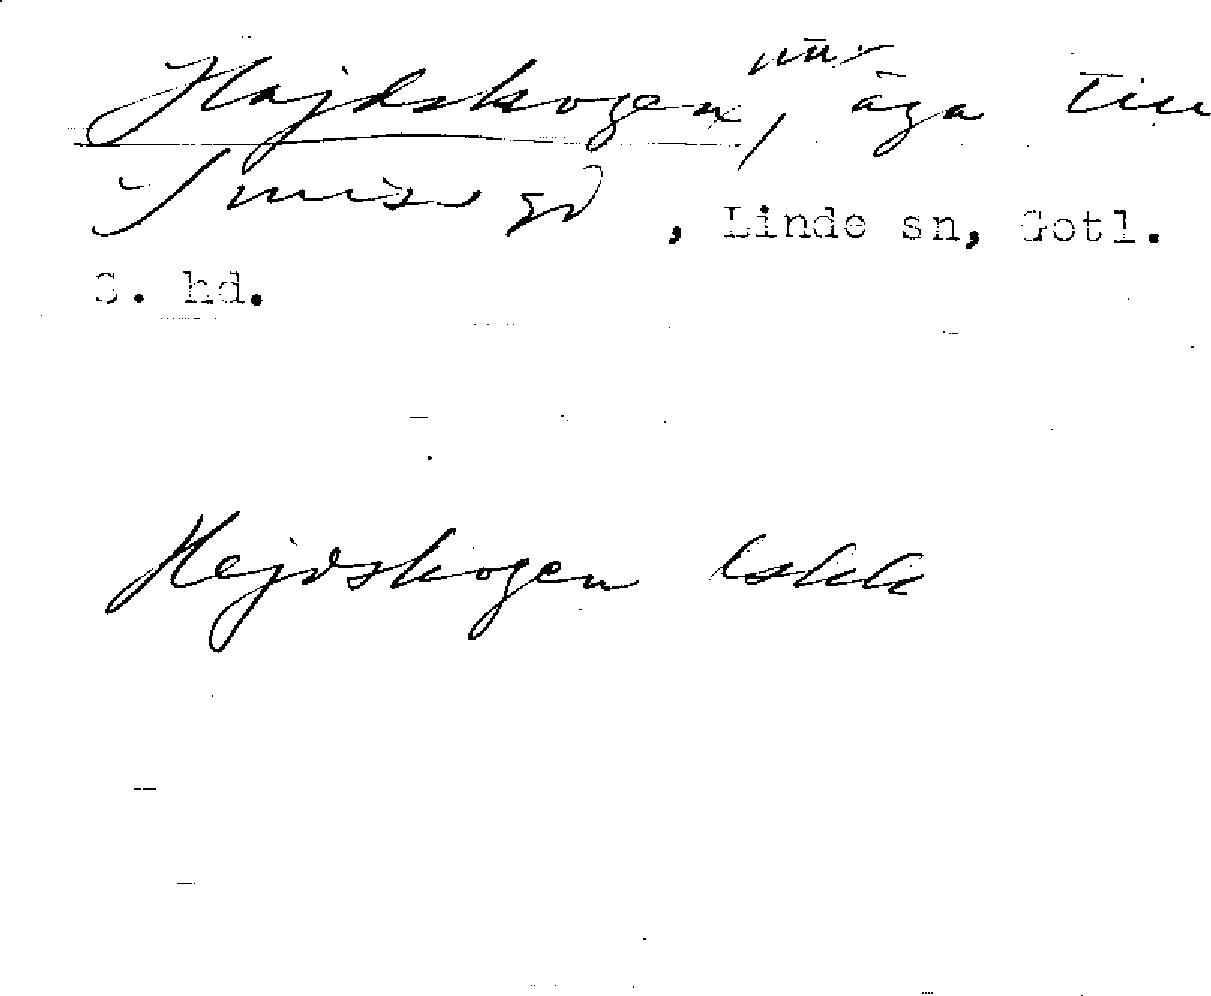 Hajdskogen, äga till
Smiss gd, Linde sn, Gotl.
S. hd.
Hejdskogen